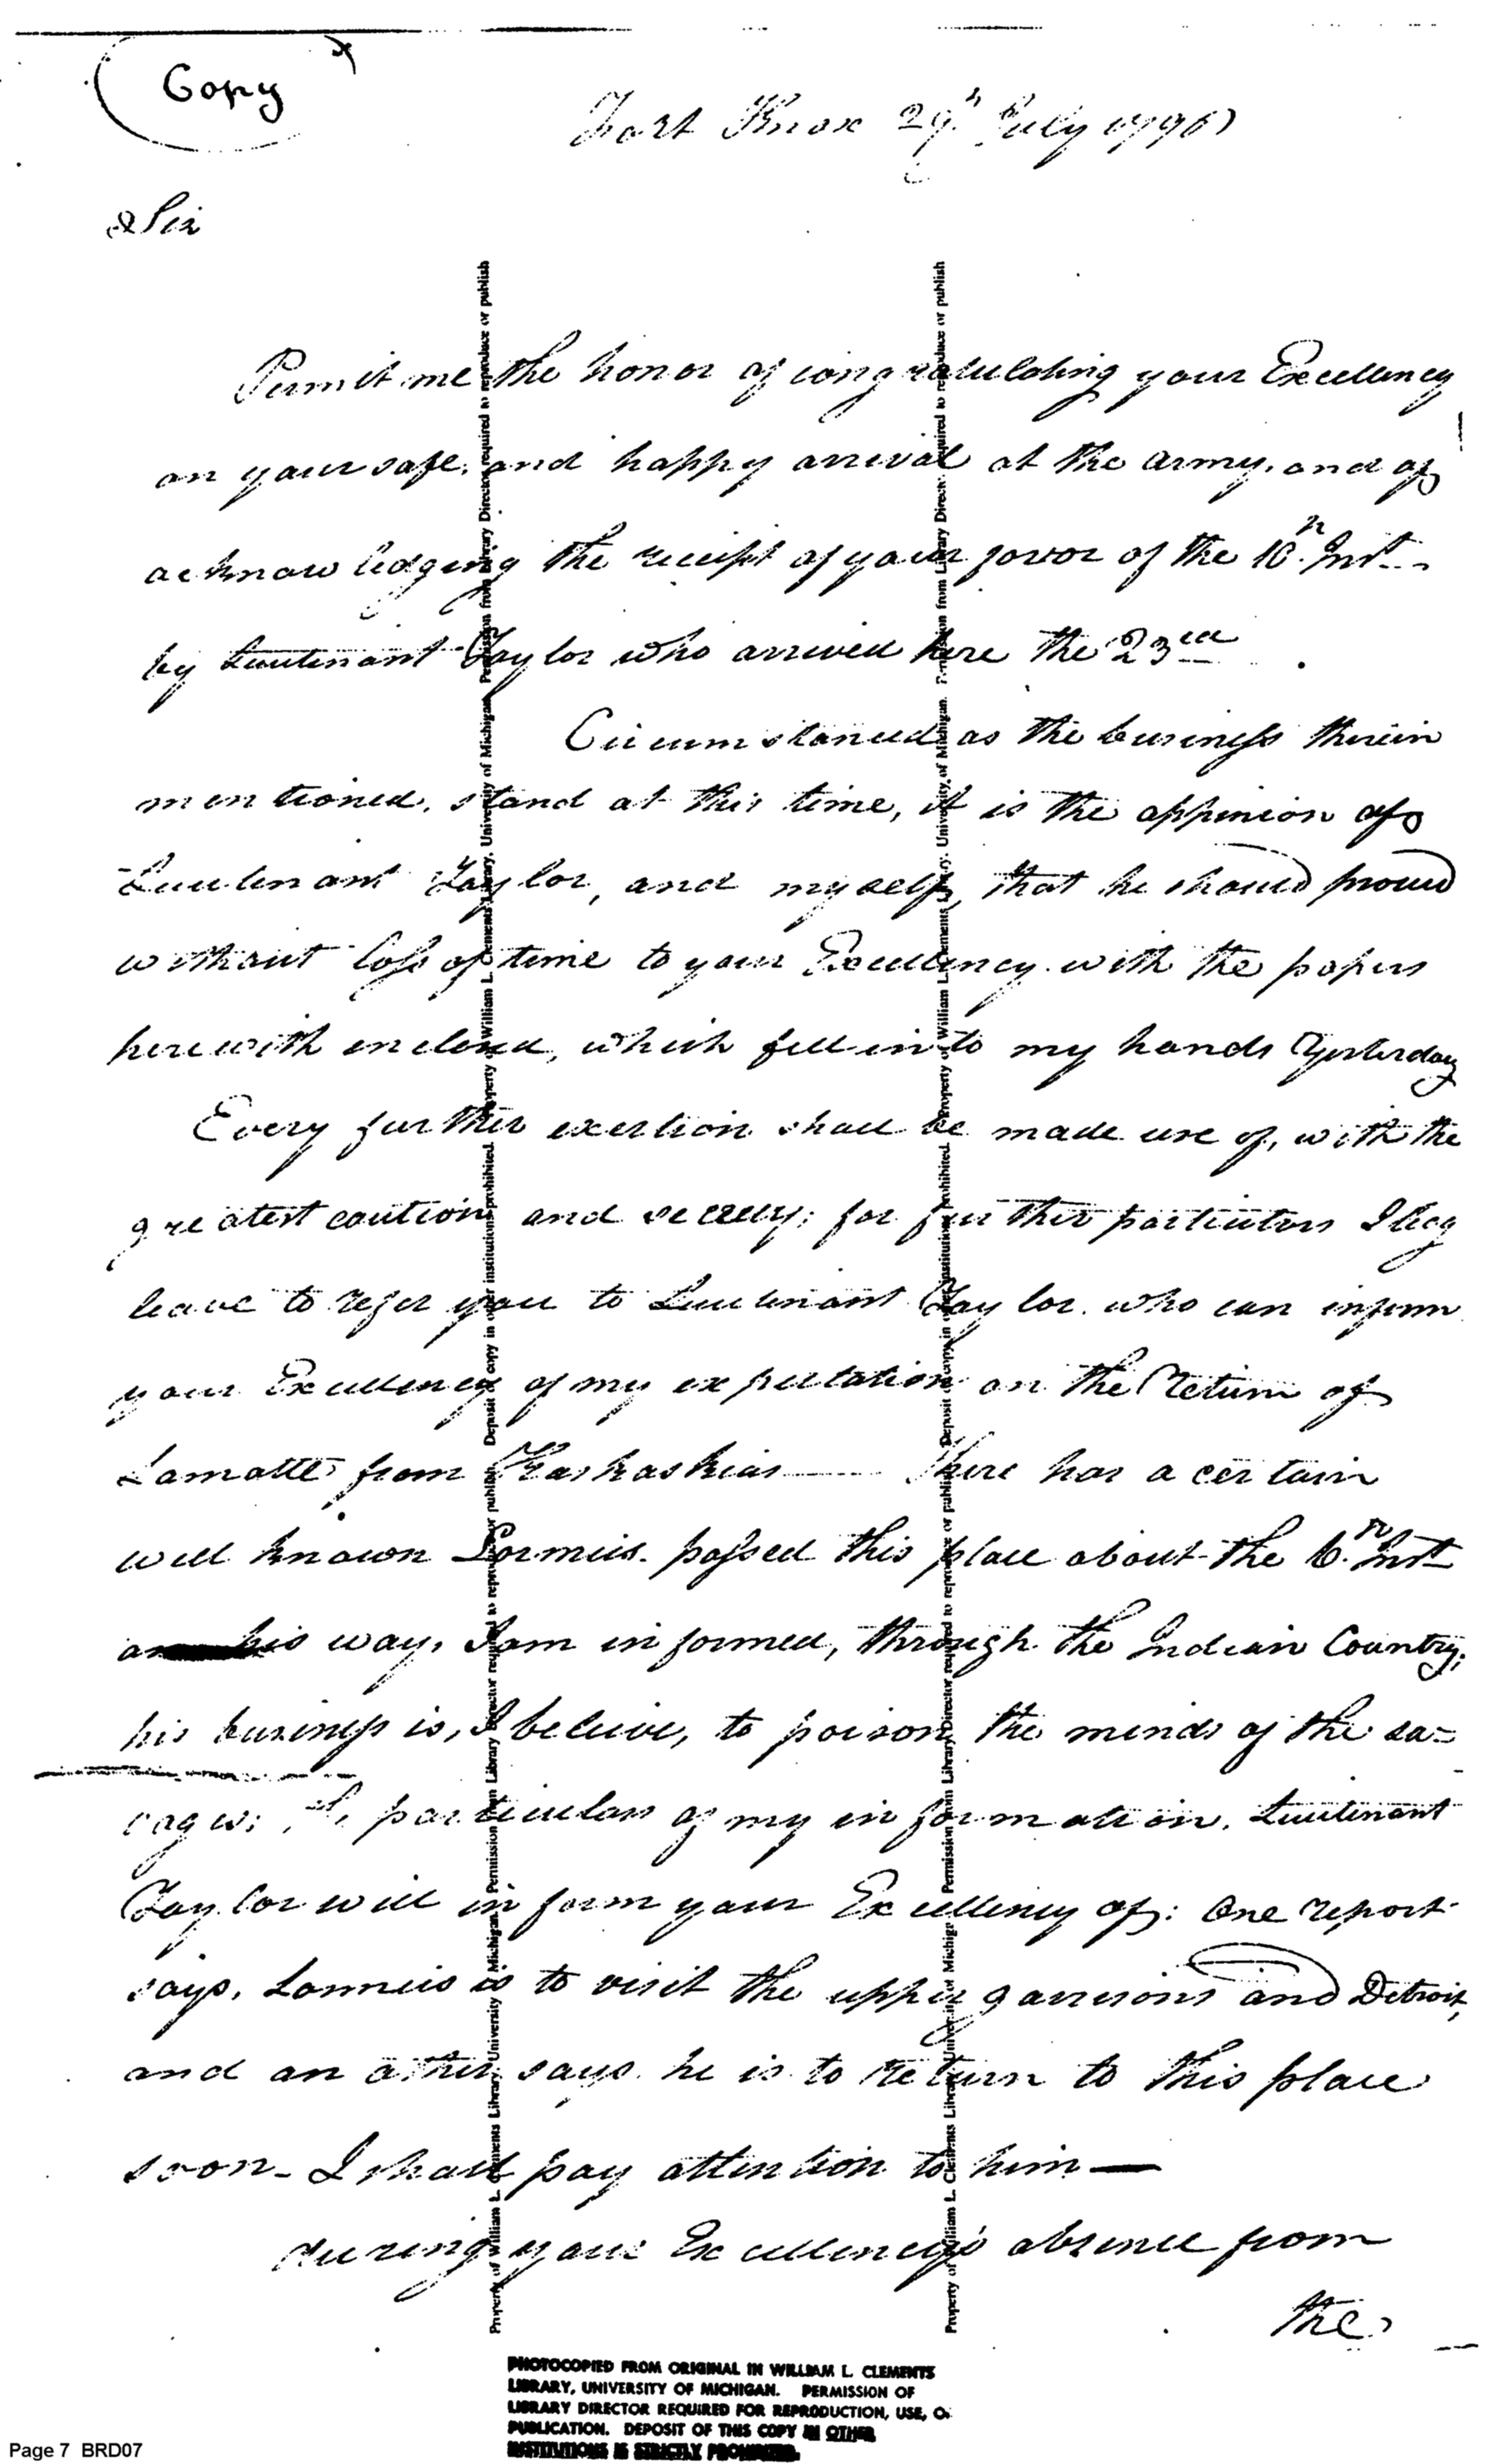 Copy
Fort Knox 29th July 1796
Sir
Permit me the honor of congratulating your Excellency
on your safe, and happy arrival at the army, and of
acknowledging the receipt of your favor of the 10th Inst.
by Lieutenant Taylor who arrived here the 23rd
Circumstanced as the business therein
mentioned, stand at this time, it is the oppinion of
Lieutenant Taylor, and myself, that he should proceed
without loss of time to your Excellency with the papers
herewith enclosed, which fell into my hands Yesterday
Every further exertion shall be made use of, with the
greatest caution and secrecy; for further particulars I beg
leave to refer you to Lieutenant Taylor. who can inform
your Excellency of my expectation on the Return of
Lamotte from Kaskaskias — There has a certain
well known Lormies. passed this place about the 6th Inst
his way, I am informed, through the Indian Country;
his business is, I believe, to poison the minds of the sa=
vages; The particulars of my information. Lieutenant
Taylor will inform your Excellency of: One report
says, Lormies is to visit the upper garrisons and Detroit,
and an other says he is to return to this place
soon - I shall pay attention to him —
during your Excellency's absence from
the
Property of William L. Clements Library, University of Michigan. Permission from Library Director required to reproduce or publish. Deposit of copy in other institutions prohibited. Property of William L. Clements Library, University of Michigan. Permission from Library Director required to reproduce or publish
Property of William L. Clements Library, University of Michigan. Permission from Library Director required to reproduce or publish. Deposit of copy in other institutions prohibited. Property of William L. Clements Library, University of Michigan. Permission from Library Director required to reproduce or publish
PHOTOCOPIED FROM ORIGINAL IN WILLIAM L. CLEMENTS
LIBRARY, UNIVERSITY OF MICHIGAN. PERMISSION OF
LIBRARY DIRECTOR REQUIRED FOR REPRODUCTION, USE, O
PUBLICATION. DEPOSIT OF THIS COPY IN OTHER
INSTITUTIONS IS STRICTLY PROHIBITED.
Page 7 BRD07